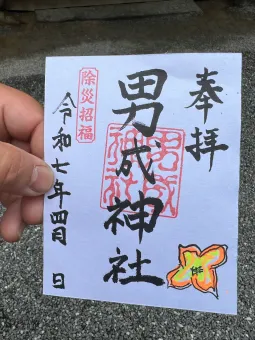 奉拝
男成神社
男成
神社
除災招福
令和七年四月 日